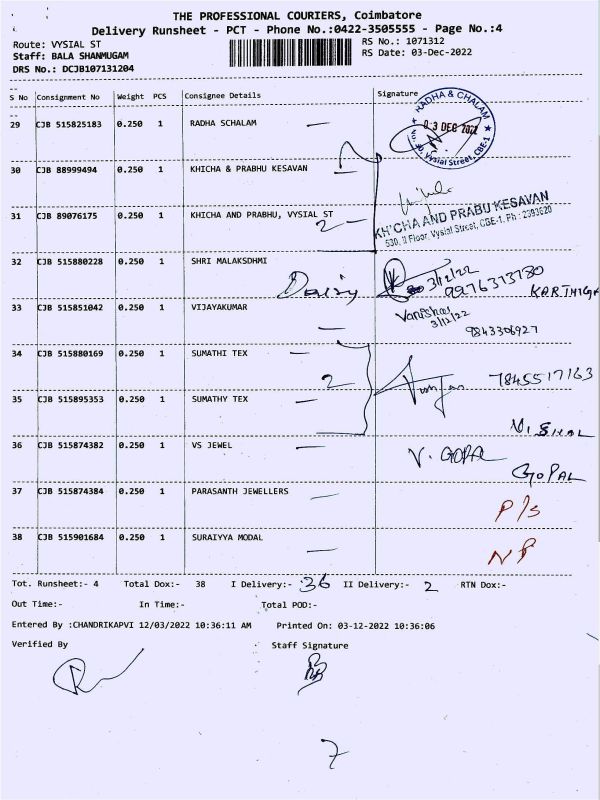 THE PROFESSIONAL COURIERS, Coimbatore
Delivery Runsheet - PCT - Phone No.:0422-3505555 - Page No.:4
Route: VYSIAL ST RS No.: 1071312
Staff: BALA SHANMUGAM RS Date: 03-Dec-2022
DRS No.: DCJB107131204
S No Consignment No Weight PCS Consignee Details Signature
29 CJB 515825183 0.250 1 RADHA SCHALAM
RADHA & CHALAM
03 DEC 2022
Vysial Street, CBE-1
30 CJB 88999494 0.250 1 KHICHA & PRABHU KESAVAN
31 CJB 89076175 0.250 1 KHICHA AND PRABHU, VYSIAL ST
2
KHICHA AND PRABU KESAVAN
530, II Floor, Vysial Street, CBE-1. Ph : 2393620
32 CJB 515880228 0.250 1 SHRI MALAKSDHMI
Daisy 3/12/22
9976313780
KARTHIGA
33 CJB 515851042 0.250 1 VIJAYAKUMAR
3/12/22
9843306927
34 CJB 515880169 0.250 1 SUMATHI TEX
2 7845517163
35 CJB 515895353 0.250 1 SUMATHY TEX
VISHAL
36 CJB 515874382 0.250 1 VS JEWEL V. GOPAL
GOPAL
37 CJB 515874384 0.250 1 PARASANTH JEWELLERS
P/S
38 CJB 515901684 0.250 1 SURAIYYA MODAL
NP
Tot. Runsheet:- 4 Total Dox:- 38 I Delivery:- 36 II Delivery:- 2 RTN Dox:-
Out Time:- In Time:- Total POD:-
Entered By :CHANDRIKAPVI 12/03/2022 10:36:11 AM Printed On: 03-12-2022 10:36:06
Verified By Staff Signature
7